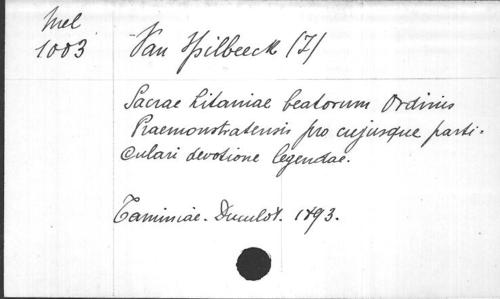 Mel
1003
Van Spilbeeck (I)
Sacrae Litaniae beatorum Ordinis
Praemonstratensis pro cujusque parti-
culari devotione legendae.
Taminiae. Duculot. 1893.